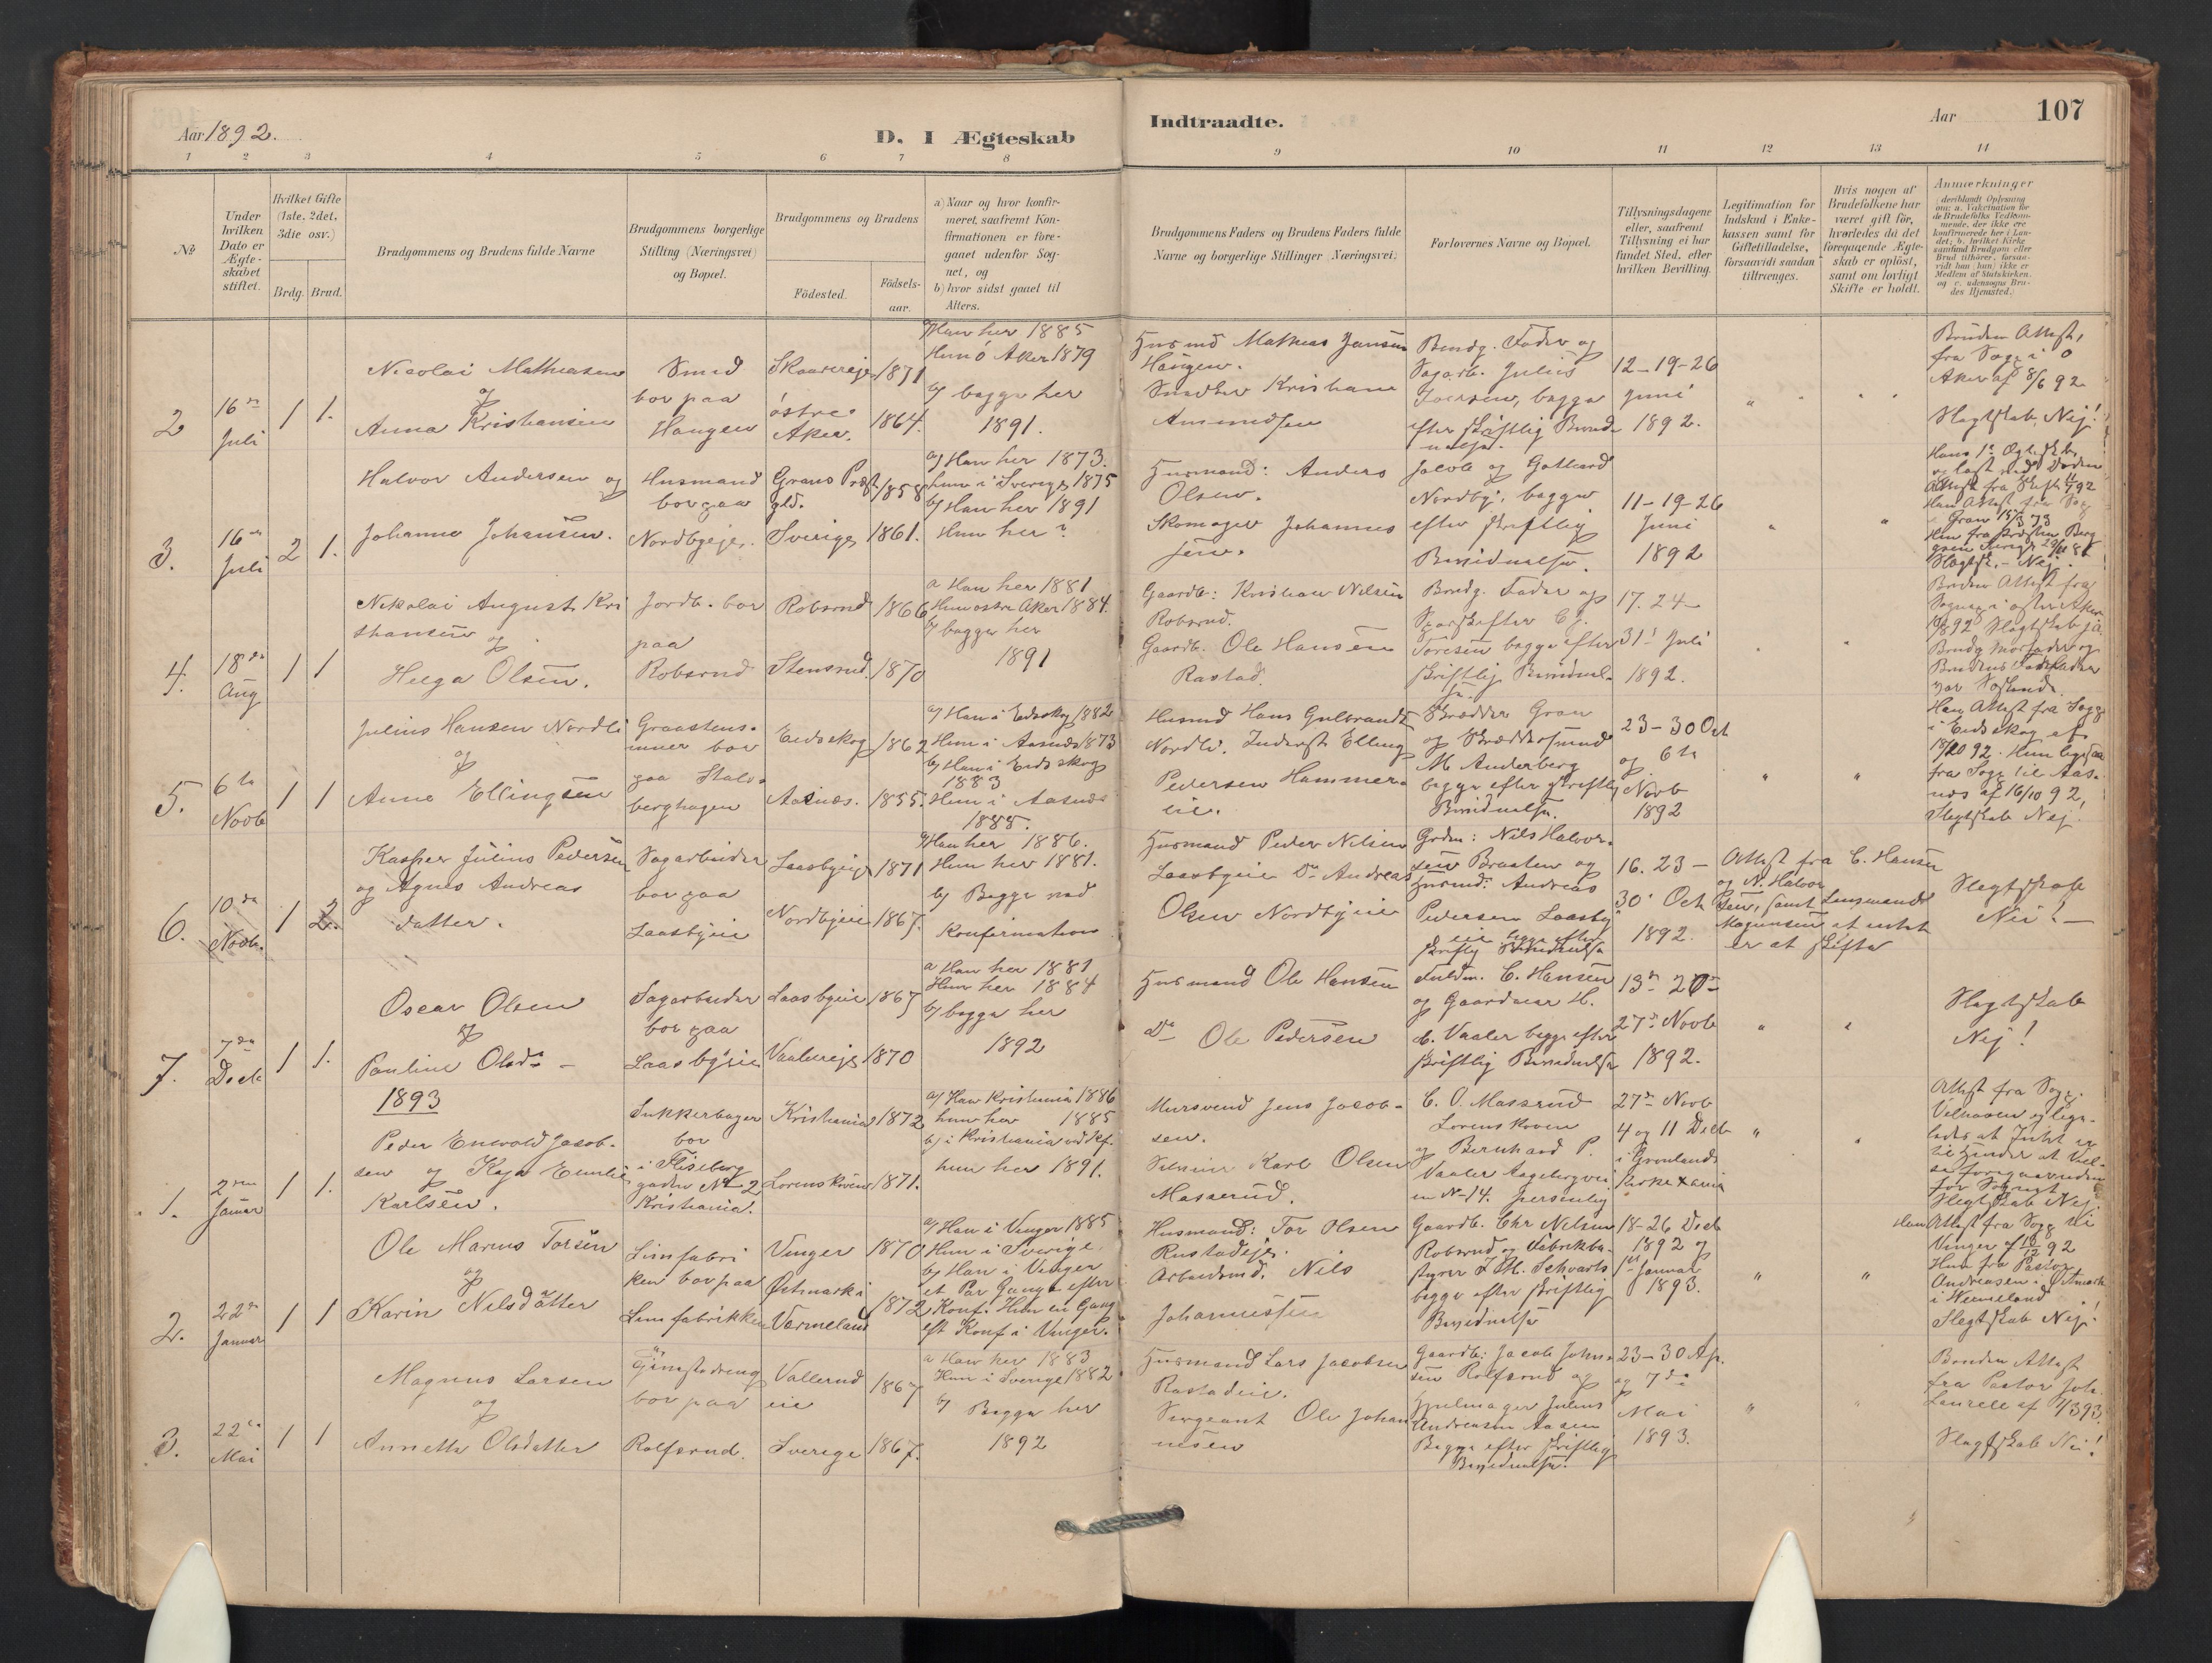 Aar 1892.
D. I Ægteskab
Indtraadte.
Aar
107
1 2 3 4 5 6 7 8
9 10 11 12 13 14
No
Under hvilken Dato er Ægteskabet stiftet.
Hvilket Gifte (1ste, 2det, 3die osv.)
Brdg. Brud.
Brudgommens og Brudens fulde Navne
Brudgommens borgerlige Stilling (Næringsvei) og Bopæl.
Brudgommens og Brudens
Födested.
Födselsaar.
a) Naar og hvor konfirmeret, saafremt Konfirmationen er foregaaet udenfor Sognet, og
b) hvor sidst gaaet til Alters.
Brudgommens Faders og Brudens Faders fulde Navne og borgerlige Stillinger (Næringsvei).
Forlovernes Navne og Bopæl.
Tillysningsdagene eller, saafremt Tillysning ei har fundet Sted, efter hvilken Bevilling.
Legitimation for Indskud i Enkekassen samt for Giftetilladelse, forsaavidt saadan tiltrænges.
Hvis nogen af Brudefolkene har været gift för, hvorledes da det foregaaende Ægteskab er oplöst, samt om lovligt Skifte er holdt.
Anmerkninger
2
16de
Juli
1 1.
Nicolai Mathiasen
og
Anna Kristiansen
Smed
bor paa
Haugen
Skaarereje 1871
østre
Aker. 1864.
a) Han her 1885
Hun ø Aker 1879
b) begge her
1891.
Husmd Mathias Jansen
Haugen.
Snedker Kristian
Amundsen
Brudg. Fader og
Sagarb. Julius
begge
efter skriftlig
12-19-26
Juni
1892.
Bruden Attest,
fra Sogpr i ø
Aker af 8/6 92
Slegtskab, Nej!
3.
16de
Juli
2 1.
Halvor Andersen og
Johanne Johansen.
Husmand
bor paa
Nordbyeje.
Grans Præst
gld. 1858
Sverige 1861.
a) Han her 1873.
hun i Sverige 1875
b) Han her 1891
Hun her?
Husmand: Anders
Olsen.
Skomager Johannes
Jacob og Gotthard
Nordby, begge
efter skriftlig
Bevidnelse.
11-19-26
Juni
1892
Gran 15/3 73
Slegtsk. - Nej.
4.
18de
Aug
1 1
Nikolai August Kri
stiansen
og
Helga Olsen.
Jordb. bor
paa
Robsrud
Robsrud 1866
Stensrud. 1870
a Han her 1881
Hun østre Aker 1884.
b) begge her
1891
Gaardb: Kristian Nilsen
Robsrud.
Gaardb. Ole Hansen
Rastad.
Brudg. Fader og
begge efter
skriftlig
17. 24-
31' Juli
1892.
Bruden Attest fra
Sogpr i øster Aker
Slegtskab ja.
Brudg Morfader og
Brudens Farfader
var Søskende.
5.
6te
Novb
1 1
Julius Hansen Nordli
og
Anne Ellingsen
bor
paa Stals-
berghagen
Eidsskog 1862
Aasnæs. 1855.
a) Han i Eidsskog 1882
Hun i Aasnæs 1873
b) Han i Eidsskog
1883
Hun i Aasnæs
1885.
Husmd Hans Gulbrands
Nordli. Inderst Elling
Pedersen Hammer-
lie.
Skrædder Gran
og
M. Anderberg
begge efter skriftlig
Bevidnelse.
23-30 Oct
og 6te
Novb
1892
Han Attest fra Sogp
i Eidsskog af
18/10 92. Hun ligesaa
fra Sogp til Aas-
næs af 16/10 92,
Slegtskab Nej.
6.
10de
Novb.
1 2.
Kasper Julius Pedersen
og Agnes Andreas
datter.
Sagarbeider
bor paa
Laasbyeie
Laasbyeje 1871
Nordbyeie 1867.
a) Han her 1886.
Hun her 1881.
b) Begge ved
Konfirmation
Husmand Peder Nilsen
Laasbyeie Do Andreas
Olsen Nordbyeie
Grdm: Nils Halvor-
sen Braaten og
Husmd: Andreas
Pedersen Laasby
eie begge efter
skriftlig Bevidnelse
16. 23-
30' Oct
1892.
Attest fra C. Hansen
og N. Halvor
sen, samt Lensmand
Magnussen at intet
er at skifte
Slegtskab
Nei!-
7.
7de
Decb
1 1.
Oscar Olsen
og
Pauline Olsdr -
Sagarbeider
bor paa
Laasbyeie
Laasbyeie 1867
Vaalereje 1870
a Han her 1881
Hun her 1884
b) begge her
1892
Husmand Ole Hansen
Do Ole Pedersen
Fuldm. C. Hansen
og Gaardeier H.
C. Vaaler begge efter
skriftlig Bevidnelse
13de 20de
27de Novb
1892.
Slegtskab
Nej!
1893
1.
2den
Januar
1 1.
Peder Enevold Jacob-
sen og Kaja Emilie
Karlsen.
Sukkerbager
bor
i Fliseberg
gaden No 2
Kristiania.
Kristiania 1872
Lørenskoven 1871.
a) Han Kristiania 1886
hun her 1885
b) i Kristiania ved Kf.
hun her 1891.
Mursvend Jens Jacob-
sen.
Karl Olsen
Masserud.
C. O. Masserud
Lørenskoven
og Bernhard P.
Vaaler Aagebergvei
en No 14. personlig
27de Novb
4 og 11 Decb
i Grønlands
Kirke Xania
Attest fra Sogp.
Slegtskab Nej.
2.
22de
Januar
1 1
Ole Marius Torsen
og
Karin Nilsdatter
Limfabri
ken bor paa
Limfabrikken
Vinger 1870
Østmark i
Værmeland 1872
a) Han i Vinger 1885
Hun i Sverige,
b) Han i Vinger
et Par Gange efter
Konf. Hun en Gang
eft Konf i Vinger.
Husmand: Tor Olsen
Rustadeje.
Arbeidsmd. Nils
Johannessen
Gaardb. Chr Nilsen
Robsrud og Fabrikbe-
styrer J. H. Schwarts
begge efter skriftlig
Bevidnelse
18-26 Decb
1892 og
1st Januar
1893.
Han Attest fra Sogp til
Vinger af 18/12 92
Hun fra Pastor
Andreasen i Østmark
i Vermeland
Slegtskab Nej!
3.
22de
Mai
1 1
Magnus Larsen
og
Annette Olsdatter
bor paa
Rolfsrud.
Vallerud
eie 1867
Sverige 1867.
a Han her 1883
Hun i Sverige 1882
b) Begge her
1892
Husmand Lars Jacobsen
Rastadeie.
Sergeant Ole Johan
nesen
Gaardb: Jacob John-
sen Rolfsrud og
Hjulmager Julius
Andreasen Aasen
Begge efter skriftlig
Bevidnelse.
23-30 Ap.
og 7de
Mai
1893.
Bruden Attest
fra Pastor Joh.
Laurell
Slegtskab Nei!